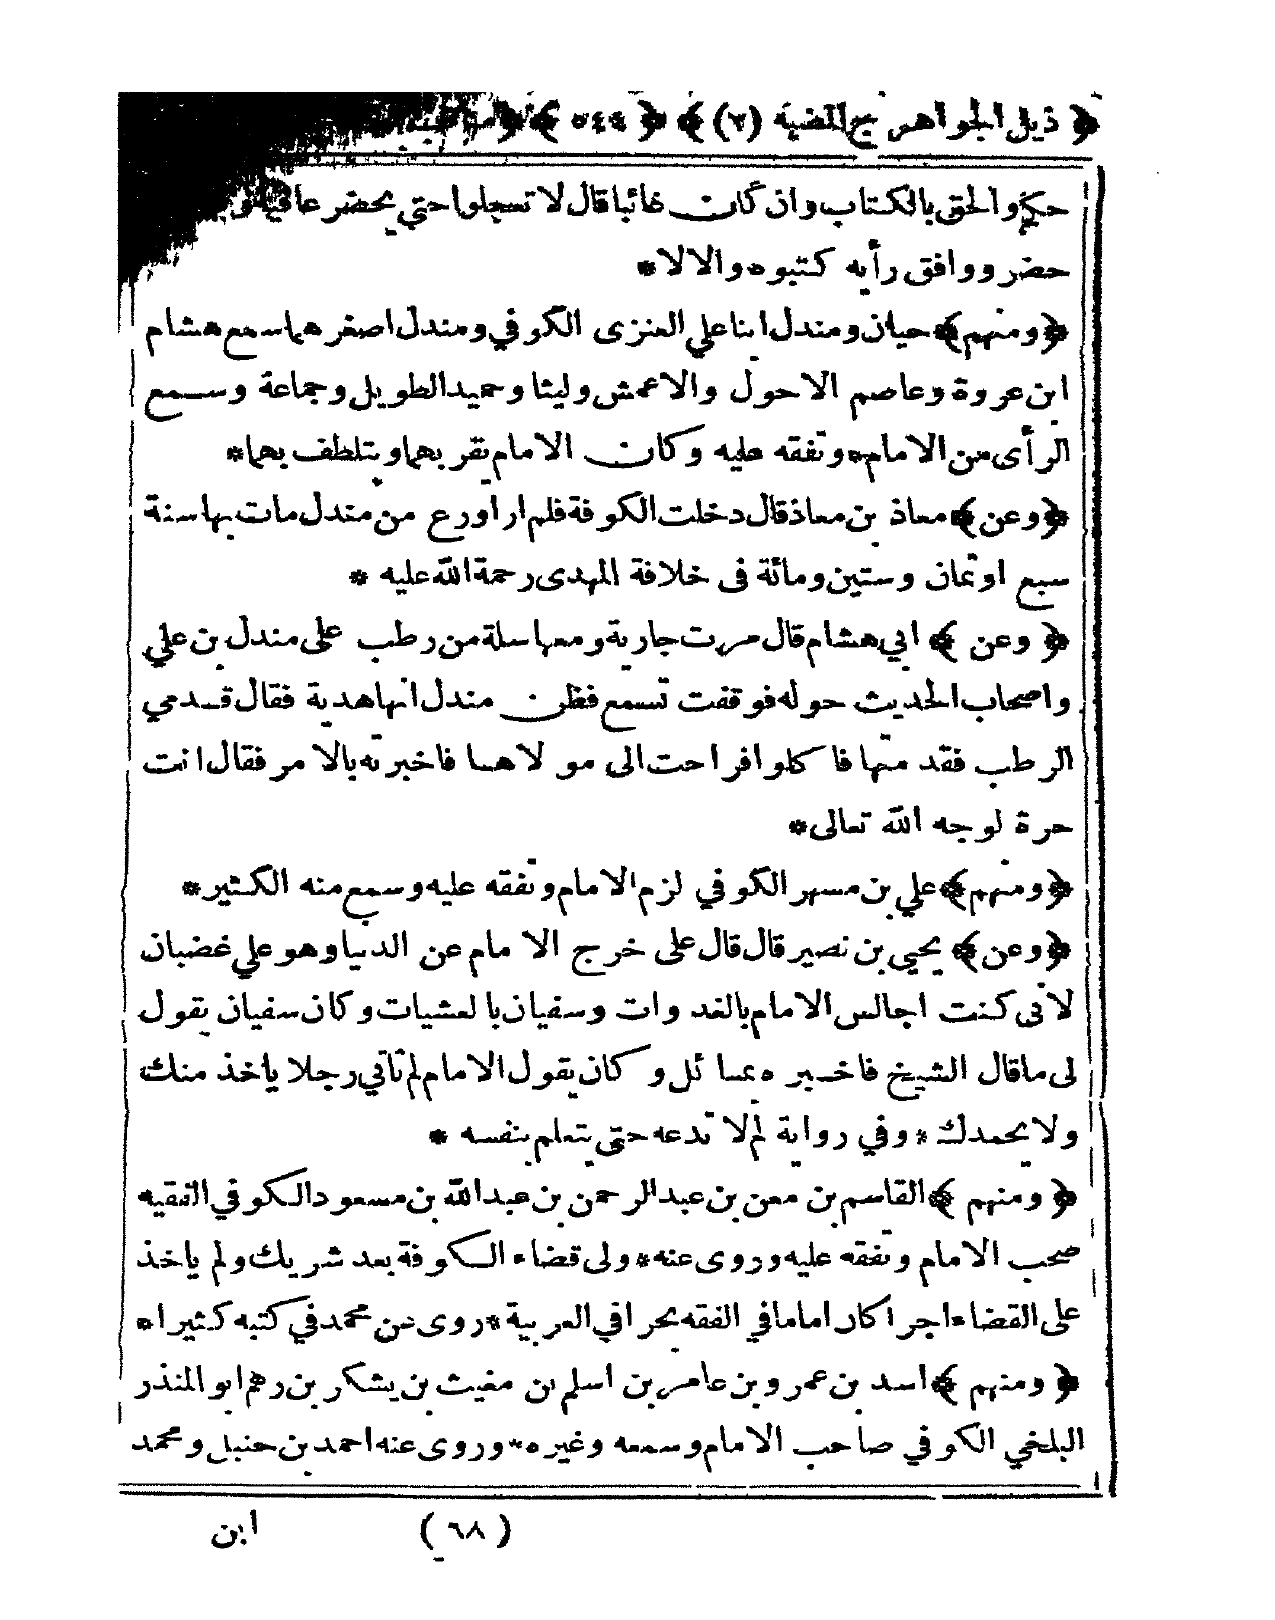 ﴿ ذيل الجواهر المضية ج (٢) ﴾ ﴿ ٥٤٩ ﴾
حكم والحق بالكتاب وان كان غائبا قال لا تسجلوا حتى يحضر عافية
حضر ووافق رأيه كتبوه والا لا *
﴿ومنهم﴾ حيان ومندل ابنا علي العنزى الكوفي ومندل اصغرهما سمع هشام
ابن عروة وعاصم الاحول والاعمش وليثا وحميد الطويل وجماعة وسمع
الرأى من الامام * وتفقه عليه وكان الامام يقر بهما ويتلطف بهما *
﴿وعن﴾ معاذ بن معاذ قال دخلت الكوفة فلم ار اورع من مندل مات بها سنة
سبع او ثمان وستين ومائة فى خلافة المهدى رحمة الله عليه *
﴿ وعن ﴾ ابي هشام قال مرت جارية ومعها سلة من رطب على مندل بن علي
واصحاب الحديث حوله فوقفت تسمع فظن مندل انها هدية فقال قدمي
الرطب فقد منها فاكلوا فراحت الى مولاها فاخبرته بالامر فقال انت
حرة لوجه الله تعالى *
﴿ومنهم﴾ علي بن مسهر الكوفي لزم الامام وتفقه عليه وسمع منه الكثير *
﴿وعن﴾ يحيى بن نصير قال قال على خرج الامام عن الدنيا وهو علي غضبان
لانى كنت اجالس الامام بالغدوات وسفيان بالعشيات وكان سفيان يقول
لى ما قال الشيخ فاخبره بمسائل وكان يقول الامام لم تأتي رجلا ياخذ منك
ولا يحمدك * وفي رواية لم لا تدعه حتى يتعلم بنفسه *
﴿ ومنهم ﴾ القاسم بن معن بن عبد الرحمن بن عبد الله بن مسعود الكوفي الفقيه
صحب الامام وتفقه عليه وروى عنه * ولى قضاء الكوفة بعد شريك ولم ياخذ
على القضاء اجرا كان اماما في الفقه بحرا في العربية * روى عن محمد في كتبه كثيرا *
﴿ ومنهم ﴾ اسد بن عمرو بن عامر بن اسلم بن مغيث بن يشكر بن رهم ابو المنذر
البلخي الكوفي صاحب الامام وسمعه وغيره * وروى عنه احمد بن حنبل ومحمد
(٦٨) ابن